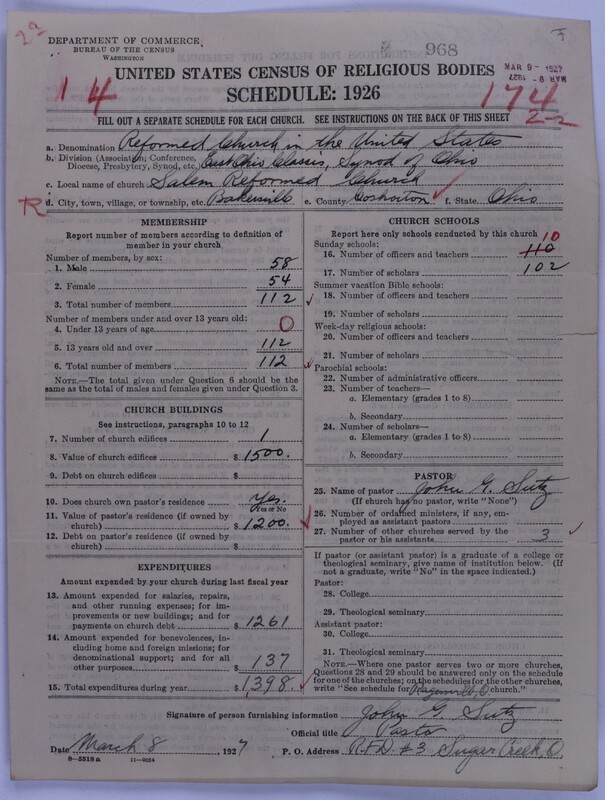 29
DEPARTMENT OF COMMERCE
BUREAU OF THE CENSUS
WASHINGTON
968
MAR 9 - 1927
MAR 9 - 1927
UNITED STATES CENSUS OF RELIGIOUS BODIES
SCHEDULE: 1926
14
174
2-2
FILL OUT A SEPARATE SCHEDULE FOR EACH CHURCH. SEE INSTRUCTIONS ON THE BACK OF THIS SHEET
a. Denomination Reformed Church in the United States
b. Division (Association, Conference, Diocese, Presbytery, Synod, etc.) East Ohio Classis, Synod of Ohio
c. Local name of church Salem Reformed Church
R d. City, town, village, or township, etc. Bakersville e. County Coshocton f. State Ohio
MEMBERSHIP
Report number of members according to definition of
member in your church
Number of members, by sex:
1. Male 58
2. Female 54
3. Total number of members 112
Number of members under and over 13 years old:
4. Under 13 years of age 0
5. 13 years old and over 112
6. Total number of members 112
NOTE.—The total given under Question 6 should be the
same as the total of males and females given under Question 3.
CHURCH BUILDINGS
See instructions, paragraphs 10 to 12
7. Number of church edifices 1
8. Value of church edifices $ 1500.
9. Debt on church edifices $
10. Does church own pastor's residence Yes.
Yes or No
11. Value of pastor's residence (if owned by
church) $ 1200.
12. Debt on pastor's residence (if owned by
church) $
EXPENDITURES
Amount expended by your church during last fiscal year
13. Amount expended for salaries, repairs,
and other running expenses; for im-
provements or new buildings; and for
payments on church debt $ 1261
14. Amount expended for benevolences, in-
cluding home and foreign missions; for
denominational support; and for all
other purposes $ 137
15. Total expenditures during year $ 1398.
CHURCH SCHOOLS
Report here only schools conducted by this church
Sunday schools:
10
16. Number of officers and teachers 110
17. Number of scholars 102
Summer vacation Bible schools:
18. Number of officers and teachers
19. Number of scholars
Week-day religious schools:
20. Number of officers and teachers
21. Number of scholars
Parochial schools:
22. Number of administrative officers
23. Number of teachers—
a. Elementary (grades 1 to 8)
b. Secondary
24. Number of scholars—
a. Elementary (grades 1 to 8)
b. Secondary
PASTOR
25. Name of pastor John G. Sutz
(If church has no pastor, write "None")
26. Number of ordained ministers, if any, em-
ployed as assistant pastors
27. Number of other churches served by the
pastor or his assistants 3
If pastor (or assistant pastor) is a graduate of a college or
theological seminary, give name of institution below. (If
not a graduate, write "No" in the space indicated.)
Pastor:
28. College
29. Theological seminary
Assistant pastor:
30. College
31. Theological seminary
NOTE.—Where one pastor serves two or more churches,
Questions 28 and 29 should be answered only on the schedule
for one of the churches; on the schedules for the other churches,
write "See schedule for Ragersville, O church."
Signature of person furnishing information John G. Sutz
Official title Pastor
Date March 8, 1927 P. O. Address R.F.D. #3 Sugar Creek, O.
8-5518a 11-9024